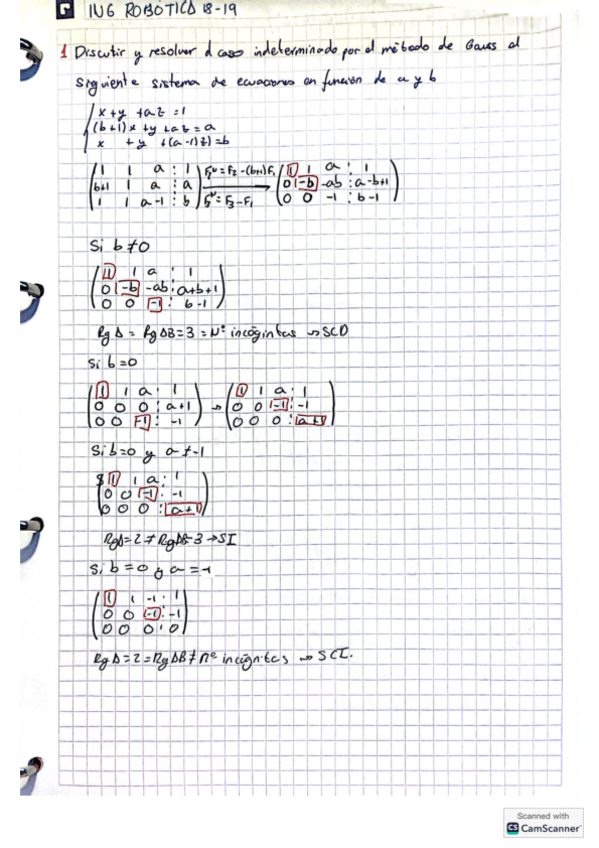 ING ROBÓTICA 18-19
1 Discutir y resolver el caso indeterminado por el método de Gauss el
siguiente sistema de ecuaciones en función de a y b
x+y +az=1
(b+1)x+y+az=a
x +y +(a-1)z)=b
1 1 a : 1 F2''=F2-(b+1)F1 1 1 a : 1
b+1 1 a : a 0 -b -ab : a-b+1
1 1 a-1 : b F3''=F3-F1 0 0 -1 : b-1
Si b≠0
1 1 a : 1
0 -b -ab : a+b+1
0 0 -1 : b-1
Rg A = Rg AB=3 = Nº incógintas → SCD
Si b=0
1 1 a : 1 1 1 a : 1
0 0 0 : a+1 → 0 0 -1 : -1
0 0 -1 : -1 0 0 0 : a+1
Si b=0 y a≠-1
1 1 a : 1
0 0 -1 : -1
0 0 0 : a+1
RgA=2≠RgAB=3→SI
Si b=0 y a=-1
1 1 -1 : 1
0 0 -1 : -1
0 0 0 : 0
RgA=2=RgAB≠nº incógnitas → SCI.
Scanned with
CS CamScanner